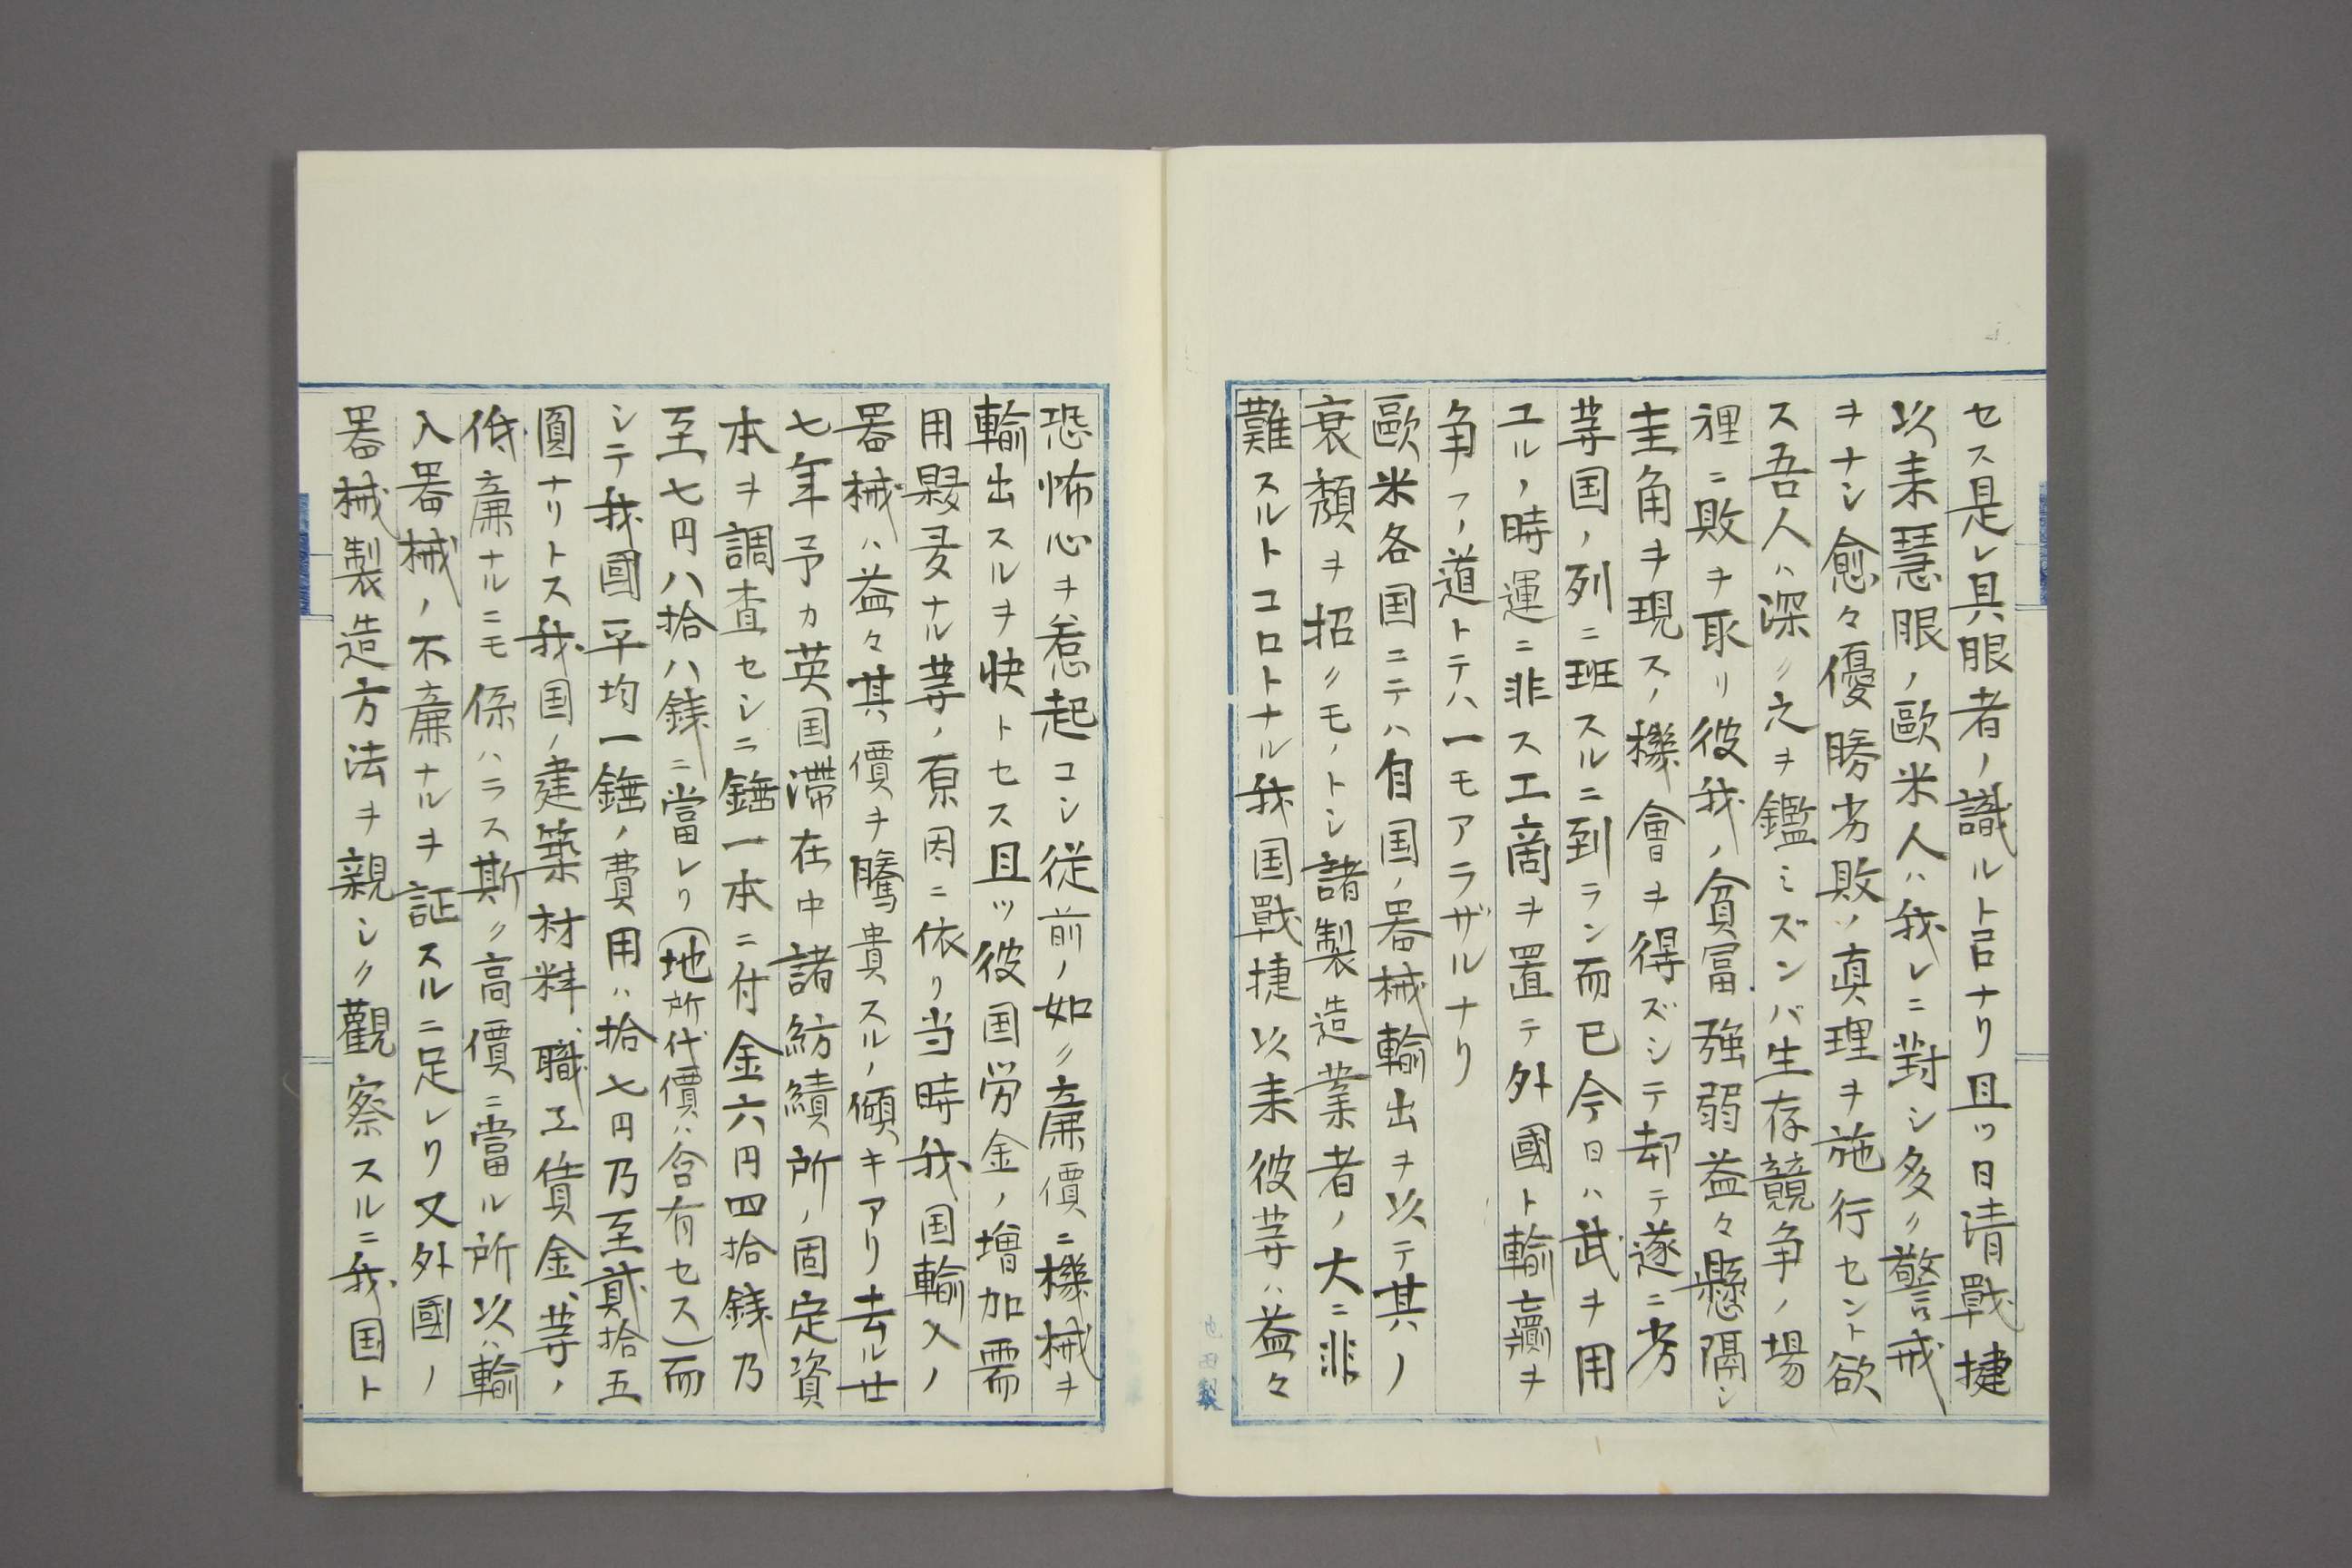 セス是レ具眼者ノ識ル所ナリ且ツ日清戰捷
以耒慧眼ノ歐米人ハ我レニ對シ多ク警戒
ヲナシ愈々優勝劣敗ノ真理ヲ施行セント欲
ス吾人ハ深ク之ヲ鑑ミズンバ生存競争ノ場
裡ニ敗ヲ取リ彼我ノ貧冨強弱益々懸隔シ
圭角ヲ現スノ機會ヲ得ズシテ却テ遂ニ劣
等国ノ列ニ班スルニ到ラン而已今日ハ武ヲ用
ユルノ時運ニ非ス工商ヲ置テ外國ト輸贏ヲ
争フノ道トテハ一モアラザルナリ
歐米各国ニテハ自国ノ器械輸出ヲ以テ其ノ
衰頽ヲ招クモノトシ諸製造業者ノ大ニ非
難スルトコロトナル我国戰捷以耒彼等ハ益々
恐怖心ヲ惹起コシ従前ノ如ク廉價ニ機械ヲ
輸出スルヲ快トセス且ツ彼国労金ノ増加需
用夥多ナル等ノ原因ニ依リ当時我国輸入ノ
器械ハ益々其價ヲ騰貴スルノ傾キアリ去ル廿
七年予カ英国滞在中諸紡績所ノ固定資
本ヲ調査セシニ錘一本ニ付金六円四拾銭乃
至七円八拾八銭ニ當レリ(地所代價ハ含有セス)而
シテ我國平均一錘ノ費用ハ拾七円乃至貳拾五
圓ナリトス我国ノ建築材料職工賃金等ノ
低廉ナルニモ係ハラス斯ク高價ニ當ル所以ハ輸
入器械ノ不廉ナルヲ証スルニ足レリ又外國ノ
器械製造方法ヲ親シク觀察スルニ我国ト